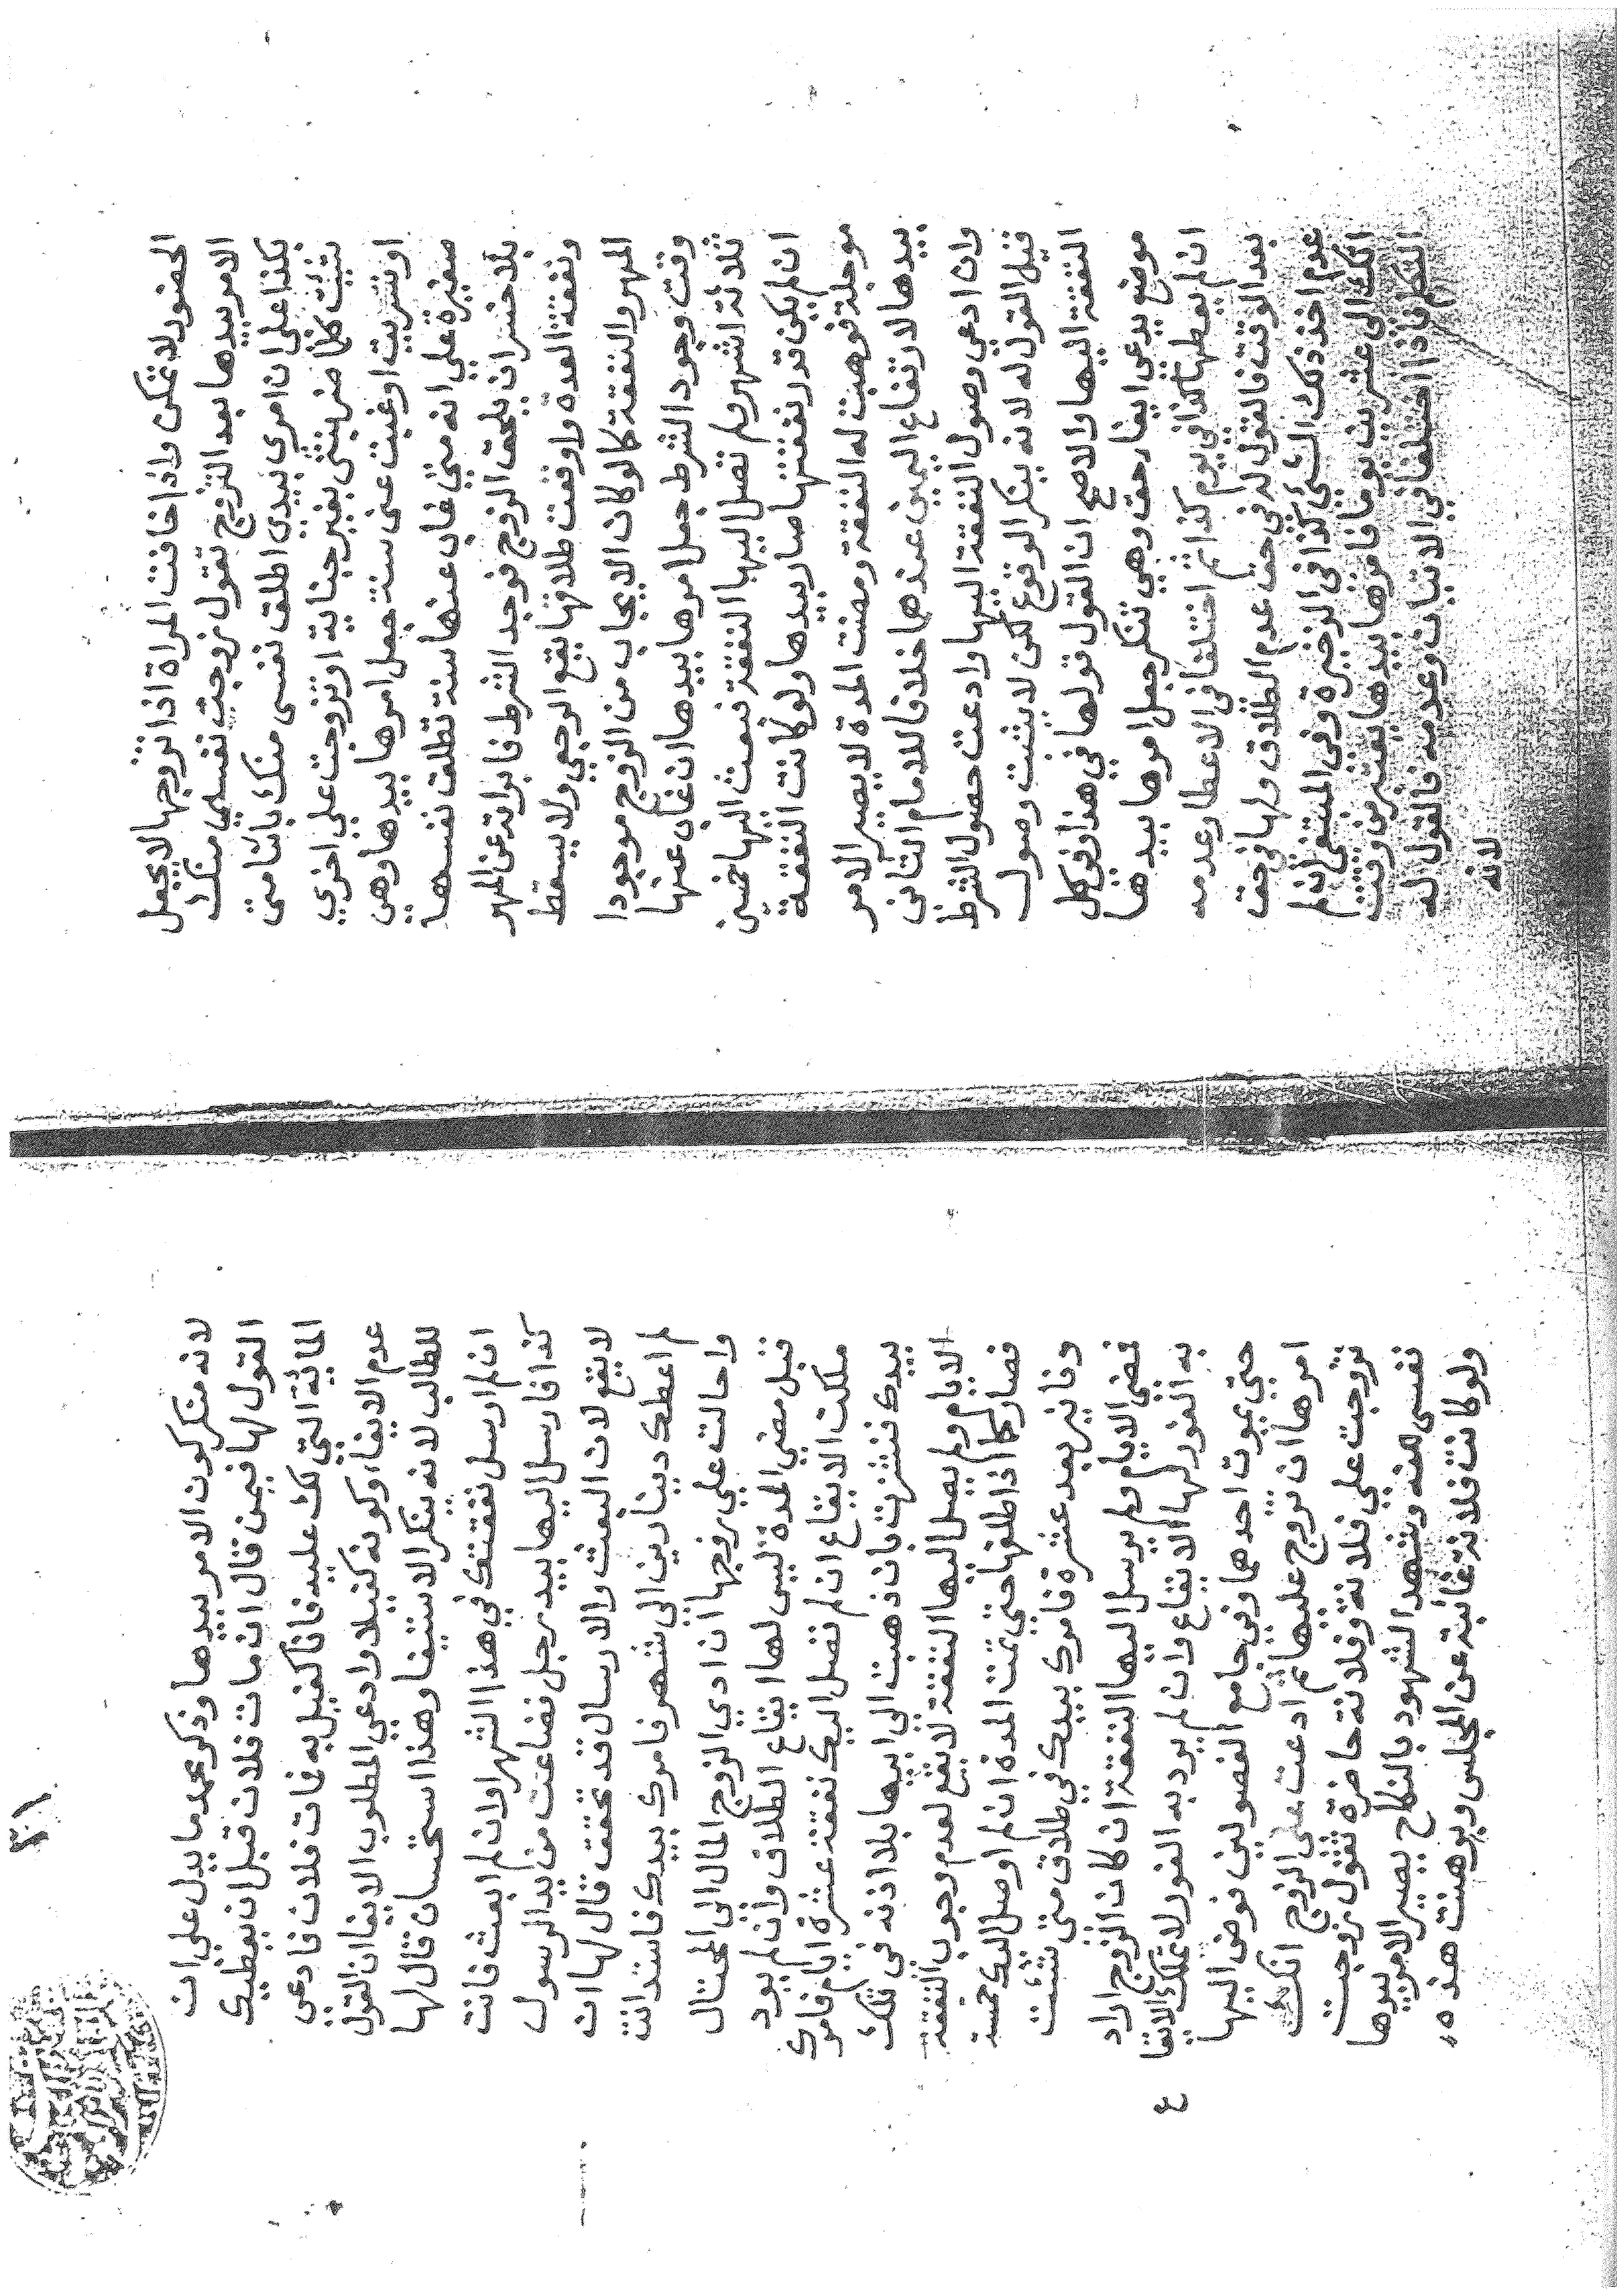 الحضور لا تمكن واذا خافت المراة اذا تزوجها لا يجعل
الامر بيدها بعد التزوج تقول زوجت نفسي منك
بكذا على ان امرى بيدي اطلق نفسى منك باثنا متى
شئت كلما ضربتنى بغير جناية او تزوجت علي اخري
او تسريت او غبت عنى سنة جعل امرها بيدها وهي
صغيرة علي انه متي غاب عنها سنة تطلق نفسها
بلا خسران يلحق الزوج فوجد الشرط فابراته عن المهر
ونفقة العدة واوقعت طلاقها يقع الرجعي ولا يسقط
المهر والنفقة كما لو كان الايجاب من الزوج موجودا
وقت وجود الشرط جعل امرها بيدها ان غاب عنها
ثلاثة اشهر ولم تصل اليها النفقة فبعث اليها خمسين
ان لم يكن قدر نفقتها صار بيدها ولو كانت النفقة
موجلة فوهبت له النفقة ومضت المدة لا يصير الامر
بيدها لارتفاع اليمين عندهما خلافا للامام الثانى
وان ادعي وصول النفقة اليها وادعت حصول الشرط
قيل القول له لانه ينكر الوقوع لكن لا يثبت وصول
النفقة اليها والاصح ان القول قولها في هذا وفي كل
موضع يدعي ايفا رحق وهي تنكر جعل امرها بيدها
ان لم يعطها كذا في يوم كذا ثم اختلفا في الاعطا وعدمه
بعد الوقت فالقول له في حق عدم الطلاق ولها في حق
عدم اخذ ذلك الشي كذا في الذخيرة وفي المنتقى ان لم
اتك الى عشرين يوما فامرها بيدها يعتبر من وقت
التكلم فاذا اختلفا في الاتيان وعدمه فالقول له
لانه
٤١
لانه منكر كون الامر بيدها وذكر محمد ما يدل علي ان
القول لها فيمن قال ان مات فلان قبل ان يعطيك
الماية التي لك عليه فانا كفيل به فمات فلان فادعي
عدم الايفاء وكونه كفيلا وادعي المطلوب الايفا ان القول
للطالب لانه ينكر الاستيفا وهذا استحسان قال لها
ان لم ارسل نفقتك في هذا الشهر او ان لم ابعث فانت
كذا فارسل اليها بيد رجل فضاعت من يد الرسول
لا يقع لان البعث والارسال قد تحقق قال لها ان
لم اعطك دينارين الي شهر فامرك بيدك فاستدانت
واحالت علي زوجها ان ادي الزوج المال الى المحتال
قبل مضي المدة ليس لها ايقاع الطلاق وان لم يود
ملكت الايقاع ان لم تصل اليك نفقة عشرة ايام فامرك
بيدك فنشزت بان ذهبت الي ابيها بلا اذنه في تلك
الايام ولم يصل اليها النفقة لا يقع لعدم وجوب النفقة
فصار كما اذا طلقها حتي تمت المدة ان لم اوصل اليك خمسة
دنانير بعد عشرة فامرك بيدك في طلاق متى شئت
فمضى الايام ولم يرسل اليها النفقة ان كان الزوج اراد
به الفور لها الايقاع وان لم يرد به الفور لا تملك الايقا ع
حتي يموت احدهما وفي جامع الفصولين فوض اليها
امرها ان تزوج عليها ثم ادعت على الزوج انك
تزوجت علي فلانة وفلانة حاضرة تقول زوجت
نفسى منه وشهد الشهود بالنكاح يصير الامر بيدها
ولو كانت فلانة غائبة عن المجلس وبرهنت هذه